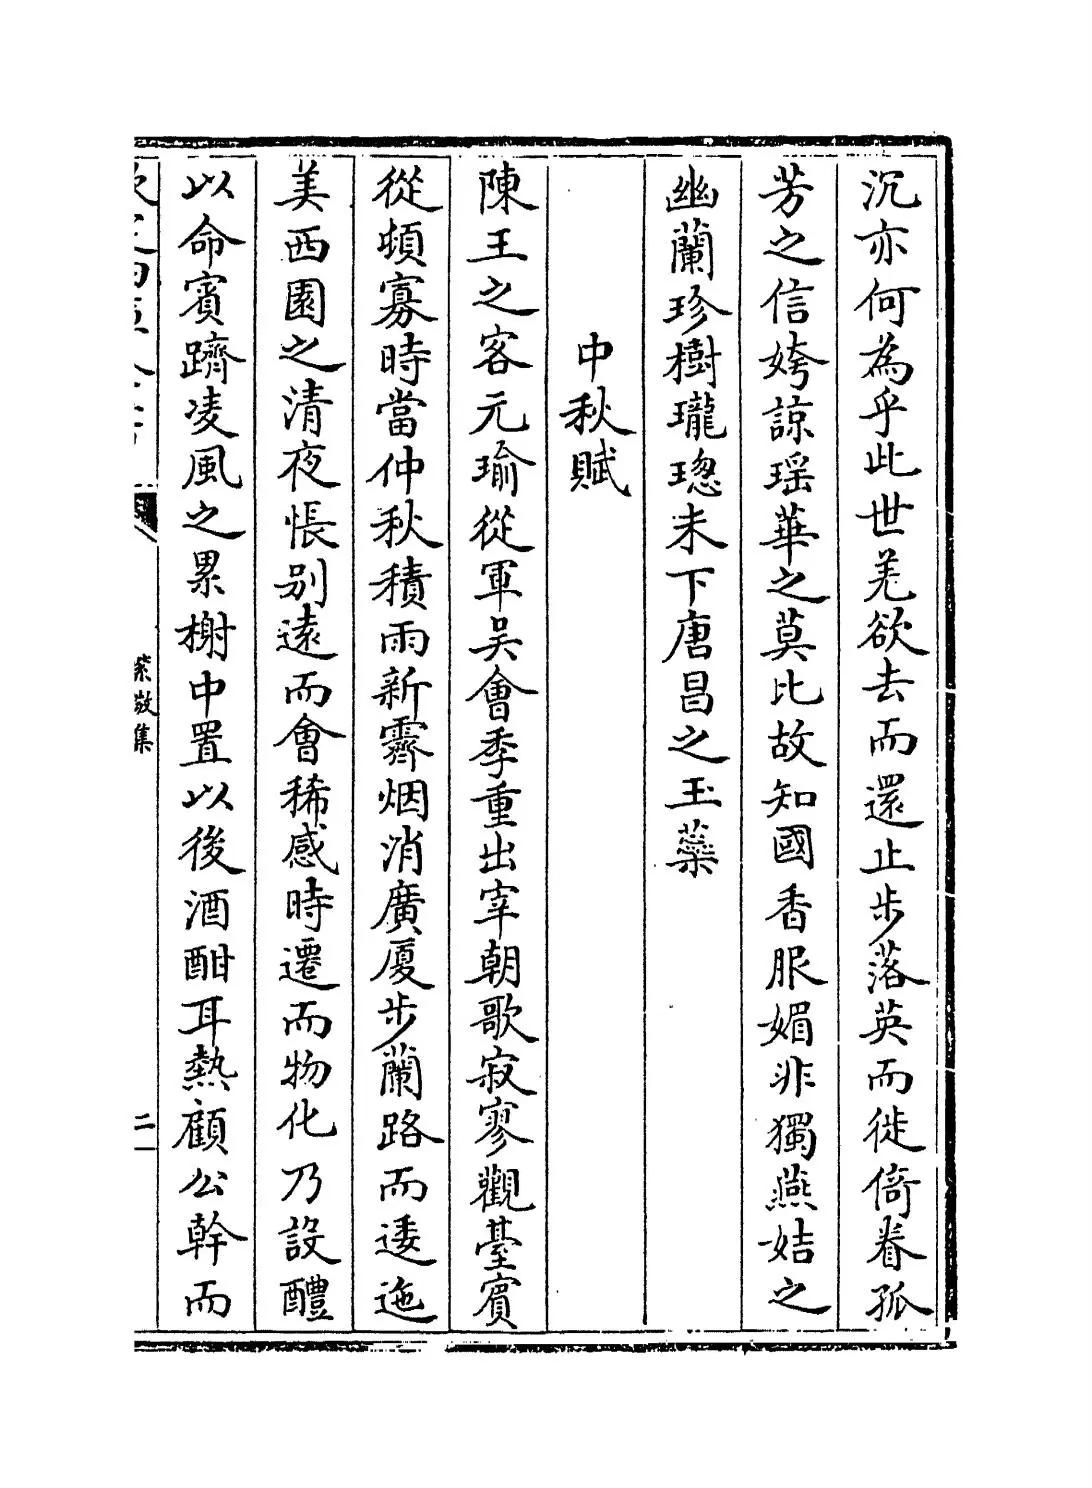 沉亦何為乎此世羌欲去而還止步落英而徙倚眷孤
芳之信姱諒瑶華之莫比故知國香服媚非獨燕姞之
幽蘭珍樹瓏璁未下唐昌之玉蘂
中秋賦
陳王之客元瑜從軍吴會季重出宰朝歌寂寥觀臺賓
從頓寡時當仲秋積雨新霽烟消廣廈步蘭路而逶迤
美西園之清夜悵别遠而會稀感時遷而物化乃設醴
以命賓躋凌風之累榭中置以後酒酣耳熱顧公幹而
集
二